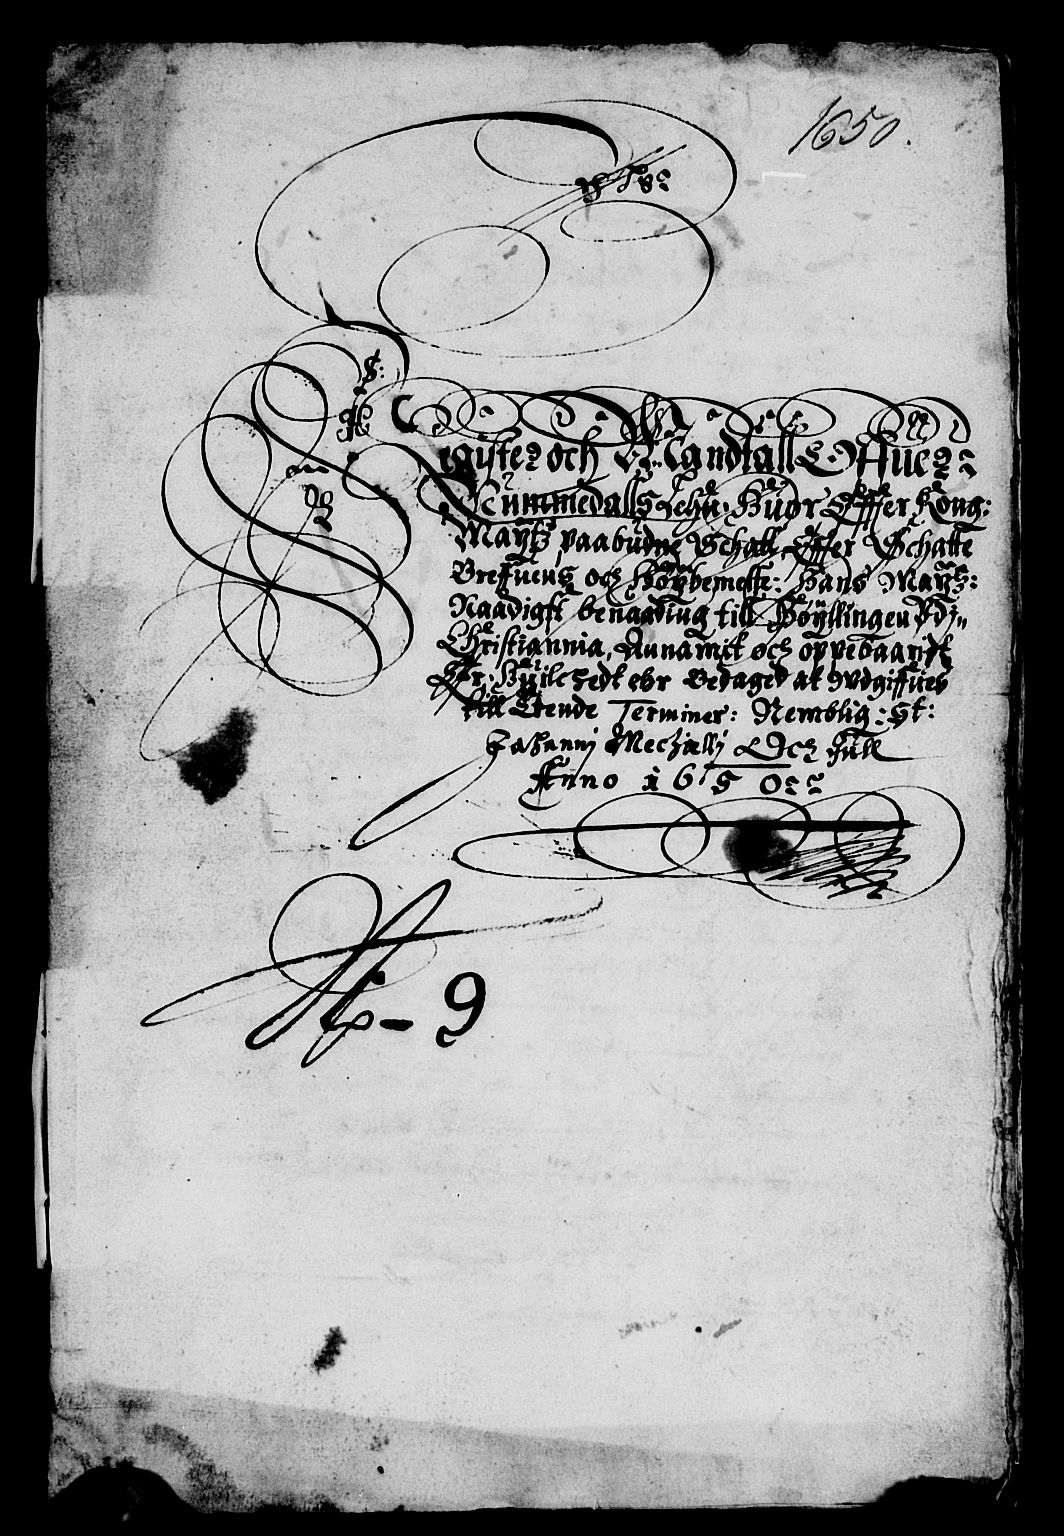 1650.
Register och Mandtall Offuer
Nummedalls Lehn, Huor Effter Kong:
Maytz paabudne Schatt, Effter Schatte
Breffuens och Höybemelte: Hans Maytz:
Naadigst benaading till Höyllingen Vdj
Christiannia, Annamit och oppebaaridt
Er, Huilchedt ehr Bedaged at Vdgiffues
till Trende Terminer: Nemblig: St:
Johannj Mechaellj Och Jull
Anno 1650
N - 9